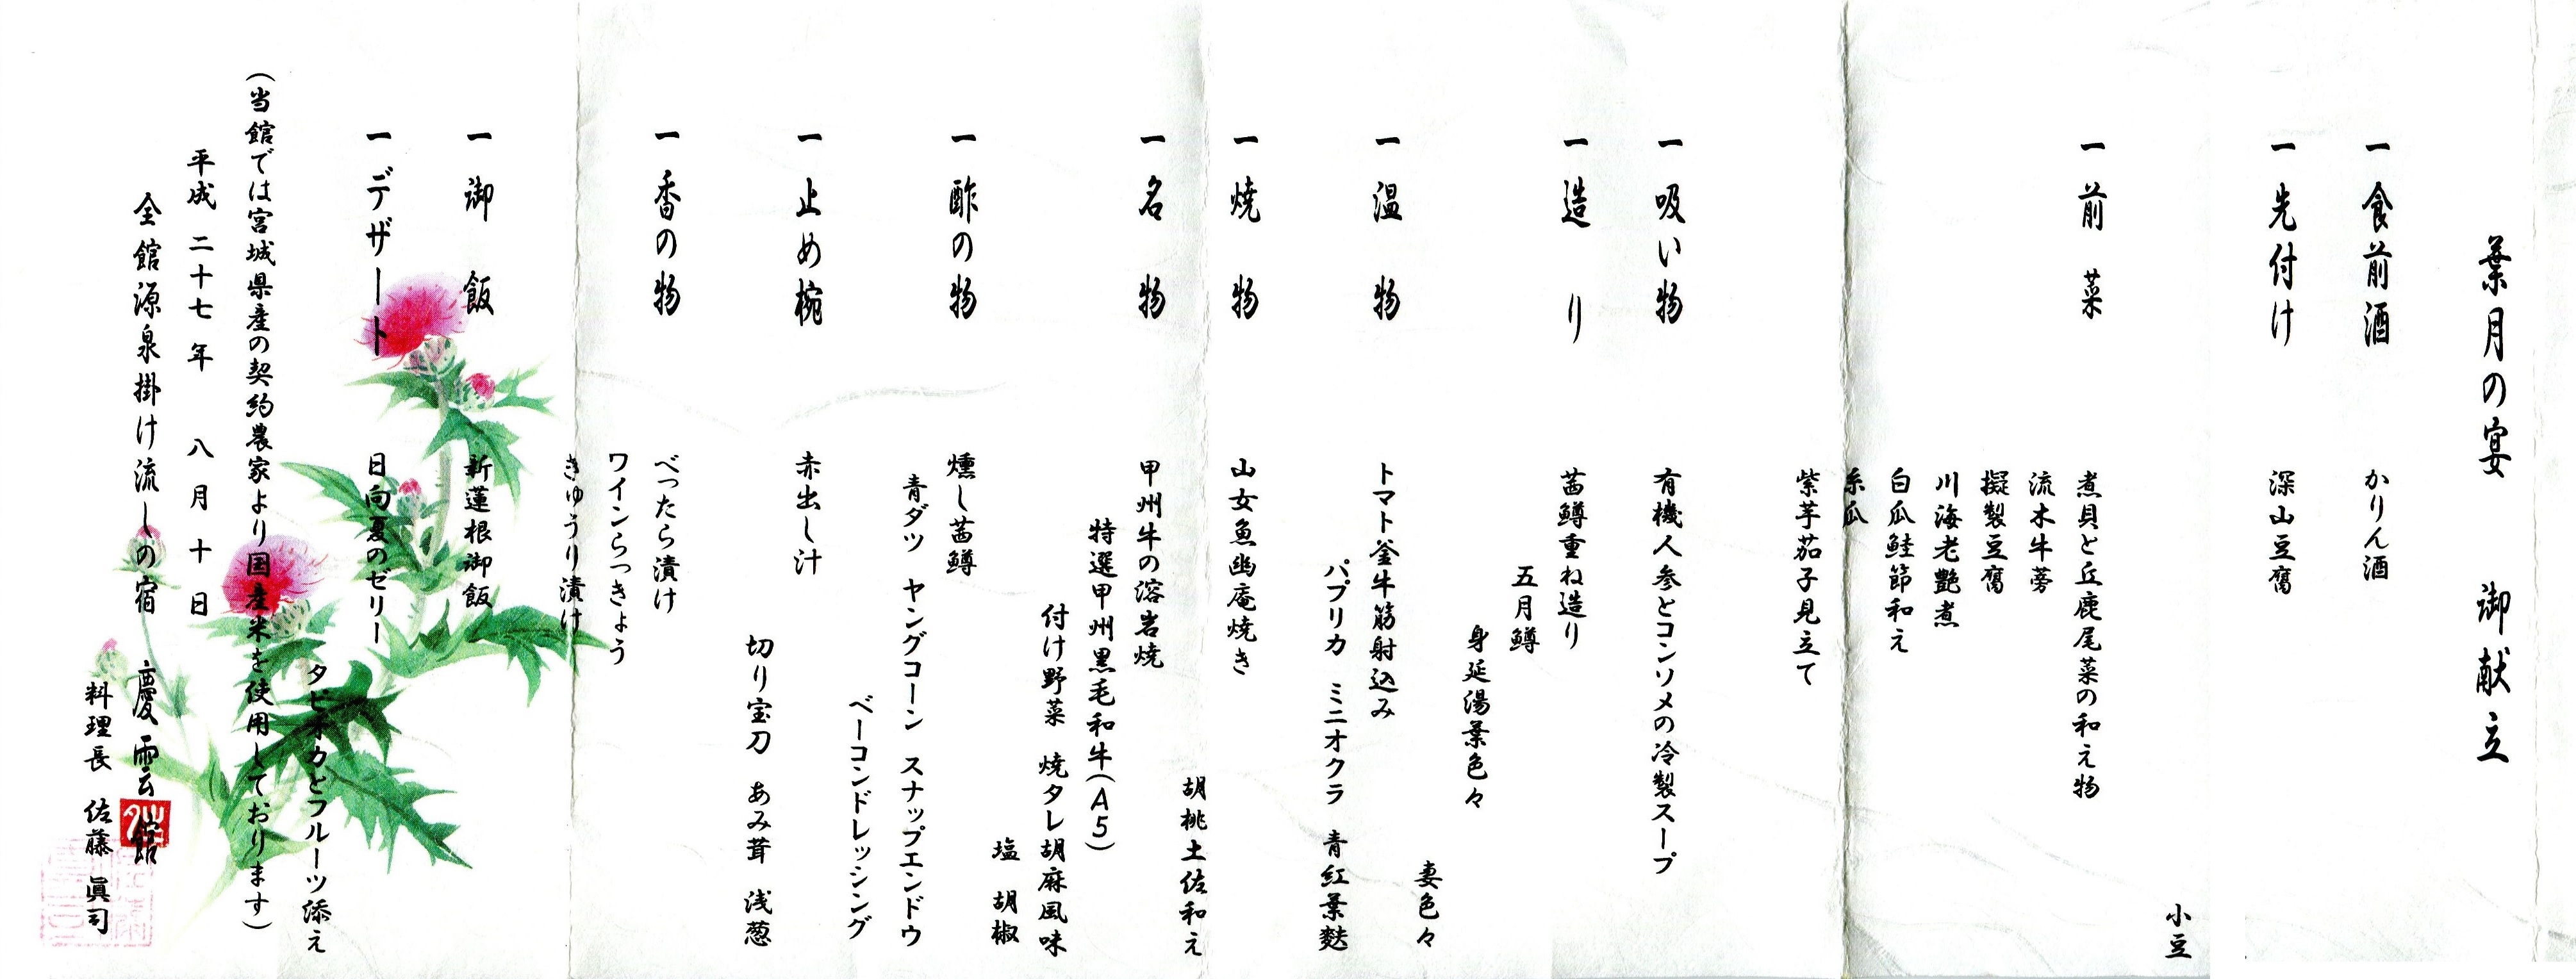 葉月の宴　御献立
一　食前酒　かりん酒
一　先付け　深山豆腐
小豆
一　前菜　煮貝と丘鹿尾菜の和え物
流木牛蒡
擬製豆腐
川海老艶煮
白瓜鮭節和え
糸瓜
紫芋茄子見立て
一　吸い物　有機人参とコンソメの冷製スープ
一　造り　茜鱒重ね造り
五月鱒
身延湯葉色々
妻色々
一　温物　トマト釜牛筋射込み
パプリカ　ミニオクラ　青紅葉麸
一　焼物　山女魚幽庵焼き
胡桃土佐和え
一　名物　甲州牛の溶岩焼
特選甲州黒毛和牛(A5)
付け野菜　焼タレ胡麻風味
塩　胡椒
一　酢の物　燻し茜鱒
青ダツ　ヤングコーン　スナップエンドウ
ベーコンドレッシング
一　止め椀　赤出し汁
切り宝刀　あみ茸　浅葱
一　香の物　べったら漬け
ワインらっきょう
きゅうり漬け
一　御飯　新蓮根御飯
一　デザート　日向夏のゼリー
タピオカとフルーツ添え
(当館では宮城県産の契約農家より国産米を使用しております)
平成二十七年　八月十日
全館源泉掛け流しの宿　慶雲館
料理長　佐藤　眞司